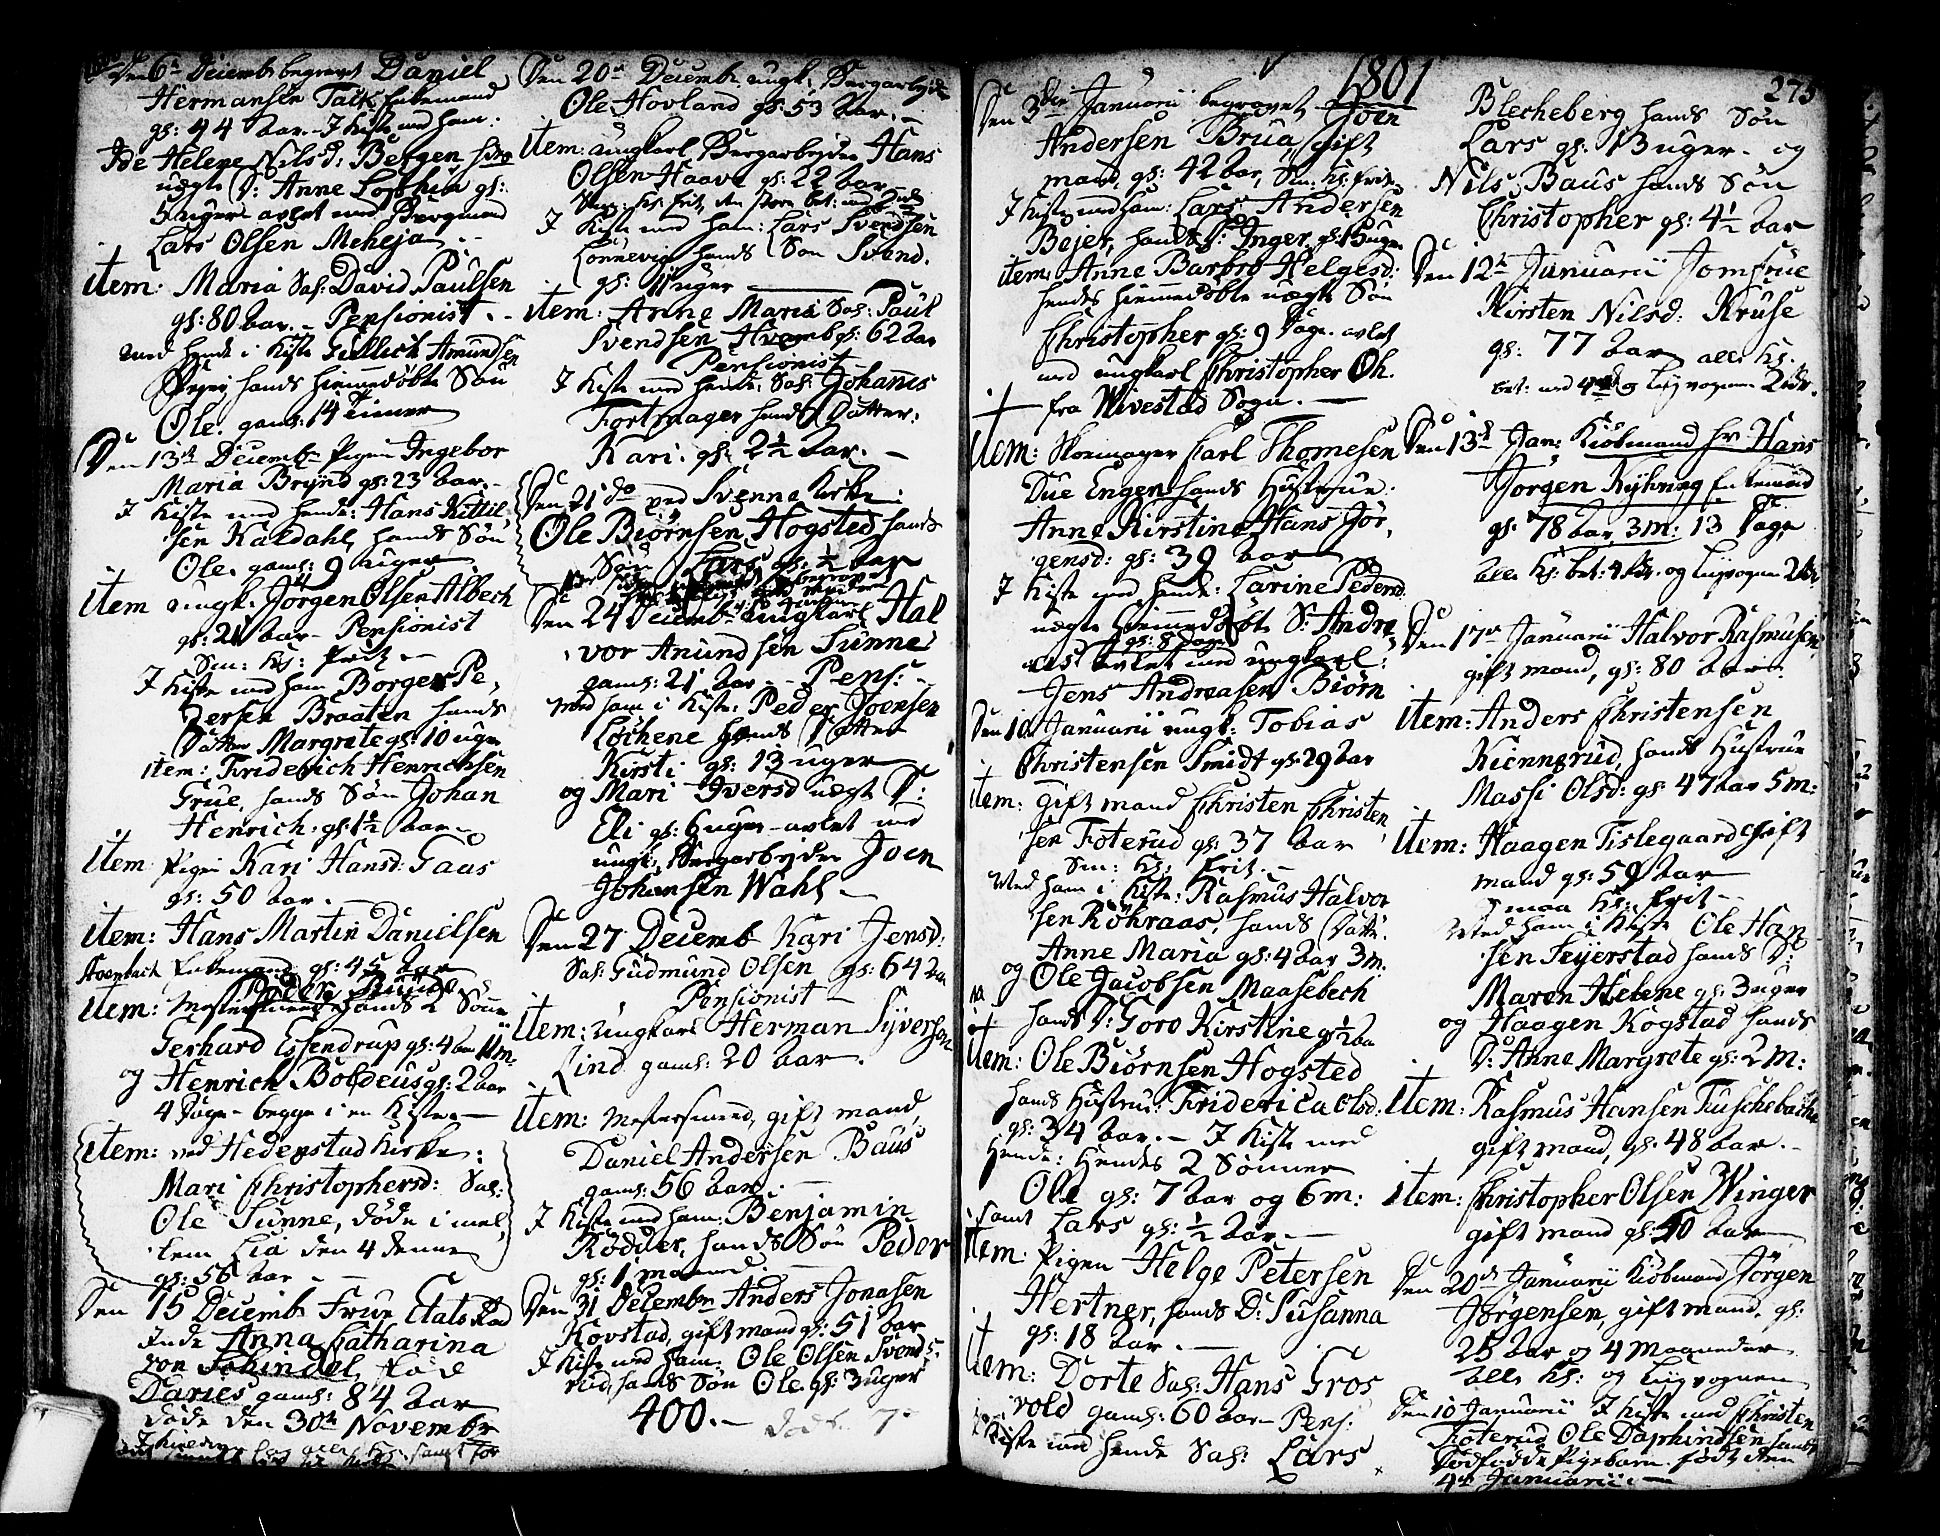 Den 6te Decembr begravet Daniel
Hermansen Falk Enkemand
gl: 44 Aar. I Kiste med ham:
Ide Helene Nilsd: Bergen
uægte D: Anne Sophia gl:
5 uger avlet med Bergmand
Lars Olsen Meheja
item: Maria Sal: David Paulsen
gl: 80 Aar. Pensionist.
med hende i Kiste Gullich Amundsen
hands hiemmedøbte Søn
Ole. gaml: 14 timer
Den 13de Decembr Pigen Ingebor
Maria Brynd gl: 23 Aar.
I Kiste med hende: Hans Kittil
sen Kaldahl, hands Søn
Ole. gaml: 9 uger
item ungk. Jørgen Olsen Albech
gl: 21 Aar Pensionist
Sm: Kl: frit
I Kiste med ham Borger Pe,
dersen Braaten hands
Datter Margrete gl: 10 uger
item: Friderich Henrichsen
Grue, hands Søn Johan
Henrich. gl: 1½ Aar
item Pigen Kari Hansd: Gaas
gl: 50 Aar.
item: Hans Martin Danielsen
Enkemand gl: 45 Aar
item: Mestersmed hands 2 Sønner
Gerhard Essendrup gl: 4 Aar 11 m.
og Henrich Boldeus gl: 2 Aar
4 Dage begge i en Kiste
item: ved Hedenstad Kirke:
Mari Christophersd: Sal:
Ole Sunne, døde i mel,
lem Lia den 4 denne
gl: 56 Aar
Den 15 Decembr Frue Etats Raad
inde Anna Catharina
von Schindel, fød
Daries gaml: 84 Aar
døde den 30te Novembr
Den 20de Decembr. ungk. Bergarbejder
Ole Hovland gl: 53 Aar.
item: ungkarl Bergarbejder Hans
Olsen Haave gl: 22 Aar
I Kiste med ham: Lars Svendsen
Lønnevig hands Søn Svend.
gl: 11 uger
item: Anne Maria Sal: Paul
Svendsen Hvamb gl: 62 Aar
Pensionist
I Kiste med hende: Sal: Johanes
Fortmager hands Datter:
Kari. gl: 2½ Aar.
Den 21 do ved Svenne Kirke:
Ole Biørnsen Hogsted hands
Søn Lars gl: ½ Aar
Den 24 Decembr ungkarl Hal
vor Anundsen Sunne
gaml: 21 Aar Pens:
med ham i Kiste: Peder Joensen
Løchene hands Datter
Kirsti gl: 13 uger
og Mari Iversd uægte D:
Eli gl: 6 uger avlet med
ungk. Bergarbejder Joen
Johansen Wahl
Den 27 Decemb Kari Jensd:
Sal: Gudmund Olsen gl: 64 Aar
Pensionist
item: ungkarl Herman Syversen
Lind gaml: 20 Aar.
item: Mestersmed, gift mand,
Daniel Andersen Baus
gaml: 56 Aar
I Kiste med ham: Benjamin
Rødder, hands Søn Peder
gl: 1 maaned.
Den 31 Decembr Anders Jonasen
Kovstad, gift mand gl: 51 Aar
I Kiste med ham: Ole Olsen Svends
rud, hands Søn Ole. gl: 3 uger
400.
1801
Den 3die Januarii begravet Joen
Andersen Brua, gift
mand, gl: 42 Aar, Sm: Kl: frit
I Kiste med ham: Lars Andersen
Bejer, hands D: Inger gl: uger
item: Anne Barbro Helgesd:
hendes hiemmedøbte uægte Søn
Christopher gl: 9 Dage. avlet
med ungkarl Christopher Oh.
fra Hvestad Sogn.
item: Skomager Carl Thomesen
Due Engen hands Hustrue:
Anne Kirstine Hans Jør,
gensd: gl: 39 Aar
I Kiste med hende: Larine Pedersd.
uægte hiemmedøbte S: Andre
gl: 8 Dage
as avlet med ungkarl:
Jens Andreasen Biørn
Den 10 Januarii ungk: Tobias
Christensen Smidt gl: 29 Aar
item: gift mand Christen Christen
sen Foterud gl: 37 Aar
Sm: Kl: frit.
Med ham i Kiste: Rasmus Halvor
sen Röhraas, hands Datt:
Anne Maria gl: 4 Aar 3 m.
og Ole Jacobsen Maasebech
hands D: Goro Kirstine gl: ½ Aar
item: Ole Biørnsen Hogsted
hands Hustrue: Friderica Olsd:
gl: 34 Aar. I Kiste med
hende: hendes 2 Sønner
Ole gl: 7 Aar og 6 m:
samt Lars gl: ½ Aar.
item Pigen Helge Petersen
Hertner, hands D: Susanna
gl: 18 Aar.
item: Dorte Sal: Hans Gros
vold gaml: 60 Aar Pens:
I Kiste med hende Sal: Lars
275
Blecheberg hands Søn
Lars gl: 13 uger. og
Nils Baus hands Søn
Christopher gl: 4½ Aar
Den 12te Januarii Jomfrue
Kirsten Nilsd: Kruse
gl: 77 Aar alle Kl.
Den 13de Jan: Kiøbmand hr Hans
Jørgen Kyhnng Enkemand
gl: 78 Aar 3 m: 13 Dage
alle Kl: bet: 4 og Liigvognen 2
Den 17de Januarii Halvor Rasmusen
gift mand, gl: 80 Aar
item: Anders Christensen
Kienngrud, hands Hustrue
Massi Olsd: gl: 47 Aar 5 m:
item: Haagen Tislegaard gift
mand gl: 59 Aar
smaa Kl: frit
Med ham i Kiste Ole Han
sen Sejerstad hands D:
Maren Helene gl: 3 uger
og Haagen Kogstad hands
D: Anne Margrete gl: 2 m:
item: Rasmus Hansen Tuschebachen
gift mand, gl: 48 Aar.
item: Christopher Olsen Winger
gift mand gl: 50 Aar
Den 20de Januarii Kiøbmand Jørgen
Jørgensen, gift mand. gl:
25 Aar og 4 Maaneder
alle Kl: og Liigvognen
Den 10 Januarii I Kiste med Christen
Foterud Ole Daphindsen hands
dødfødde Pigebarn. født den
4de Januarii